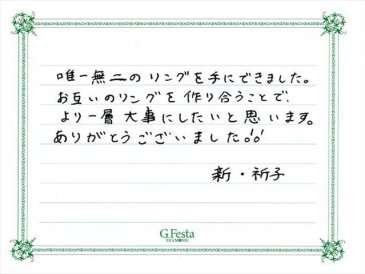 唯一無二のリングを手にできました。
お互いのリングを作り合うことで、
より一層大事にしたいと思います。
ありがとうございました!!
新・祈子
G.Festa
DIAMOND